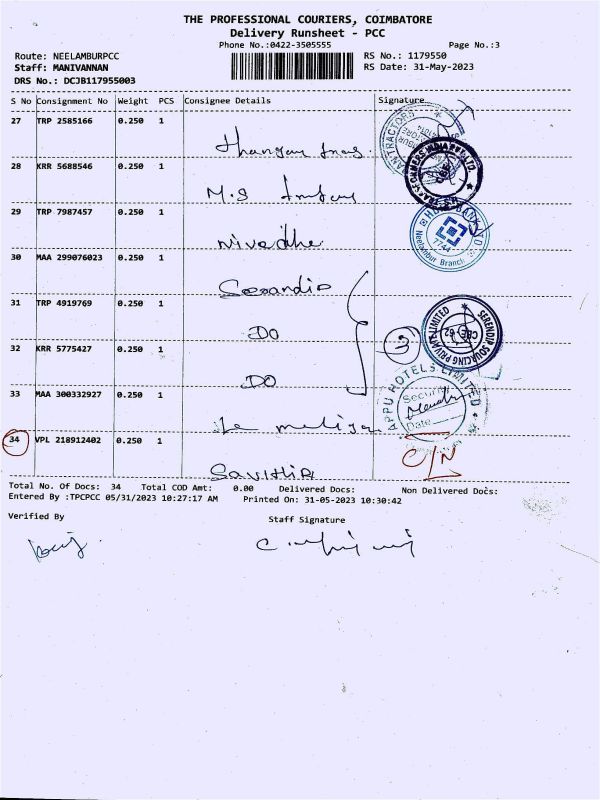 THE PROFESSIONAL COURIERS, COIMBATORE
Delivery Runsheet - PCC
Phone No.:0422-3505555 Page No.:3
Route: NEELAMBURPCC RS No.: 1179550
Staff: MANIVANNAN RS Date: 31-May-2023
DRS No.: DCJB117955003
S No Consignment No Weight PCS Consignee Details Signature
27 TRP 2585166 0.250 1
28 KRR 5688546 0.250 1
M.S
29 TRP 7987457 0.250 1
Nivedha
30 MAA 299076023 0.250 1
31 TRP 4919769 0.250 1
DO
32 KRR 5775427 0.250 1
DO
3
SERENDIP SOURCING PRIVATE LIMITED
CBE-62
33 MAA 300332927 0.250 1
APPU HOTELS LIMITED
Security
Date
34 VPL 218912402 0.250 1
C/N
Savithia
Neelambur Branch
7744
Total No. Of Docs: 34 Total COD Amt: 0.00 Delivered Docs: Non Delivered Docs:
Entered By :TPCPCC 05/31/2023 10:27:17 AM Printed On: 31-05-2023 10:30:42
Verified By Staff Signature